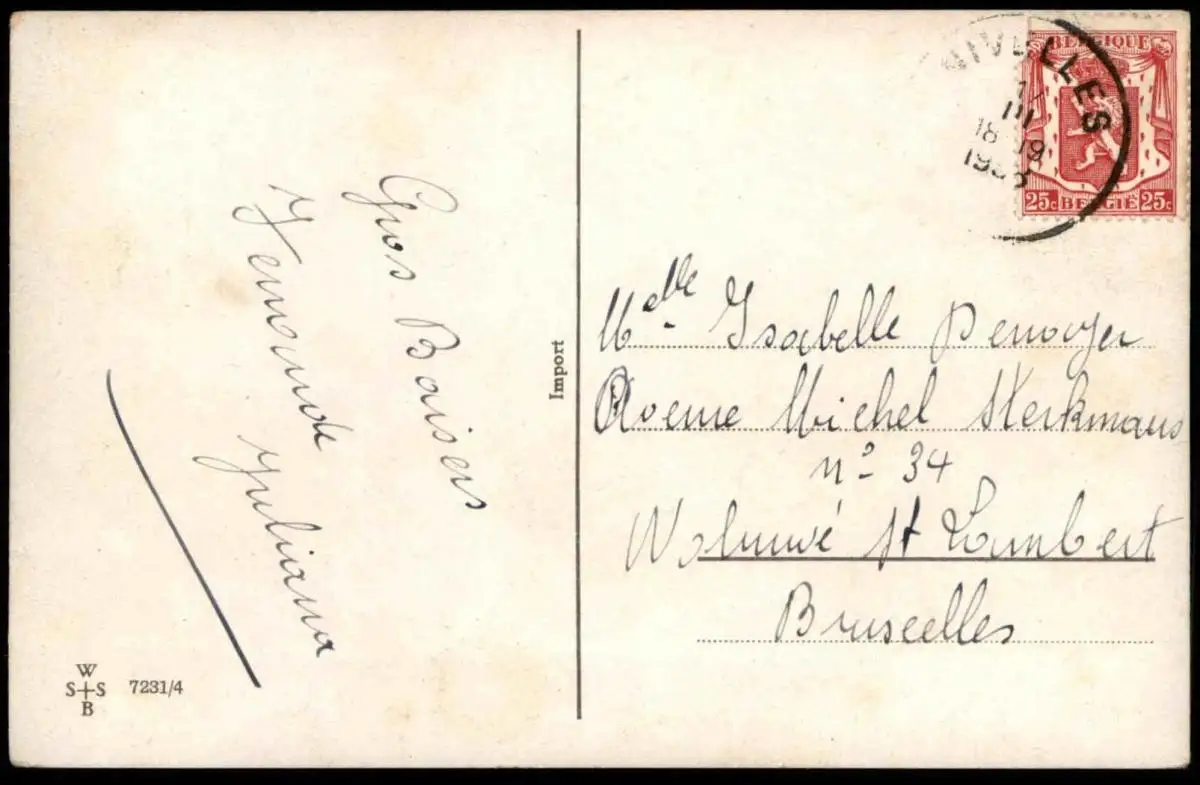 Gros Baisers
Yenonde
Juliana
W
S S
B
7231/4
Import
NIVELLES
III
18 19
BELGIQUE
25c BELGIË 25c
Melle Isabelle Penoyer
Roeme Michel Sterkmans
nº 34
Woluwé St Lambert
Bruxelles